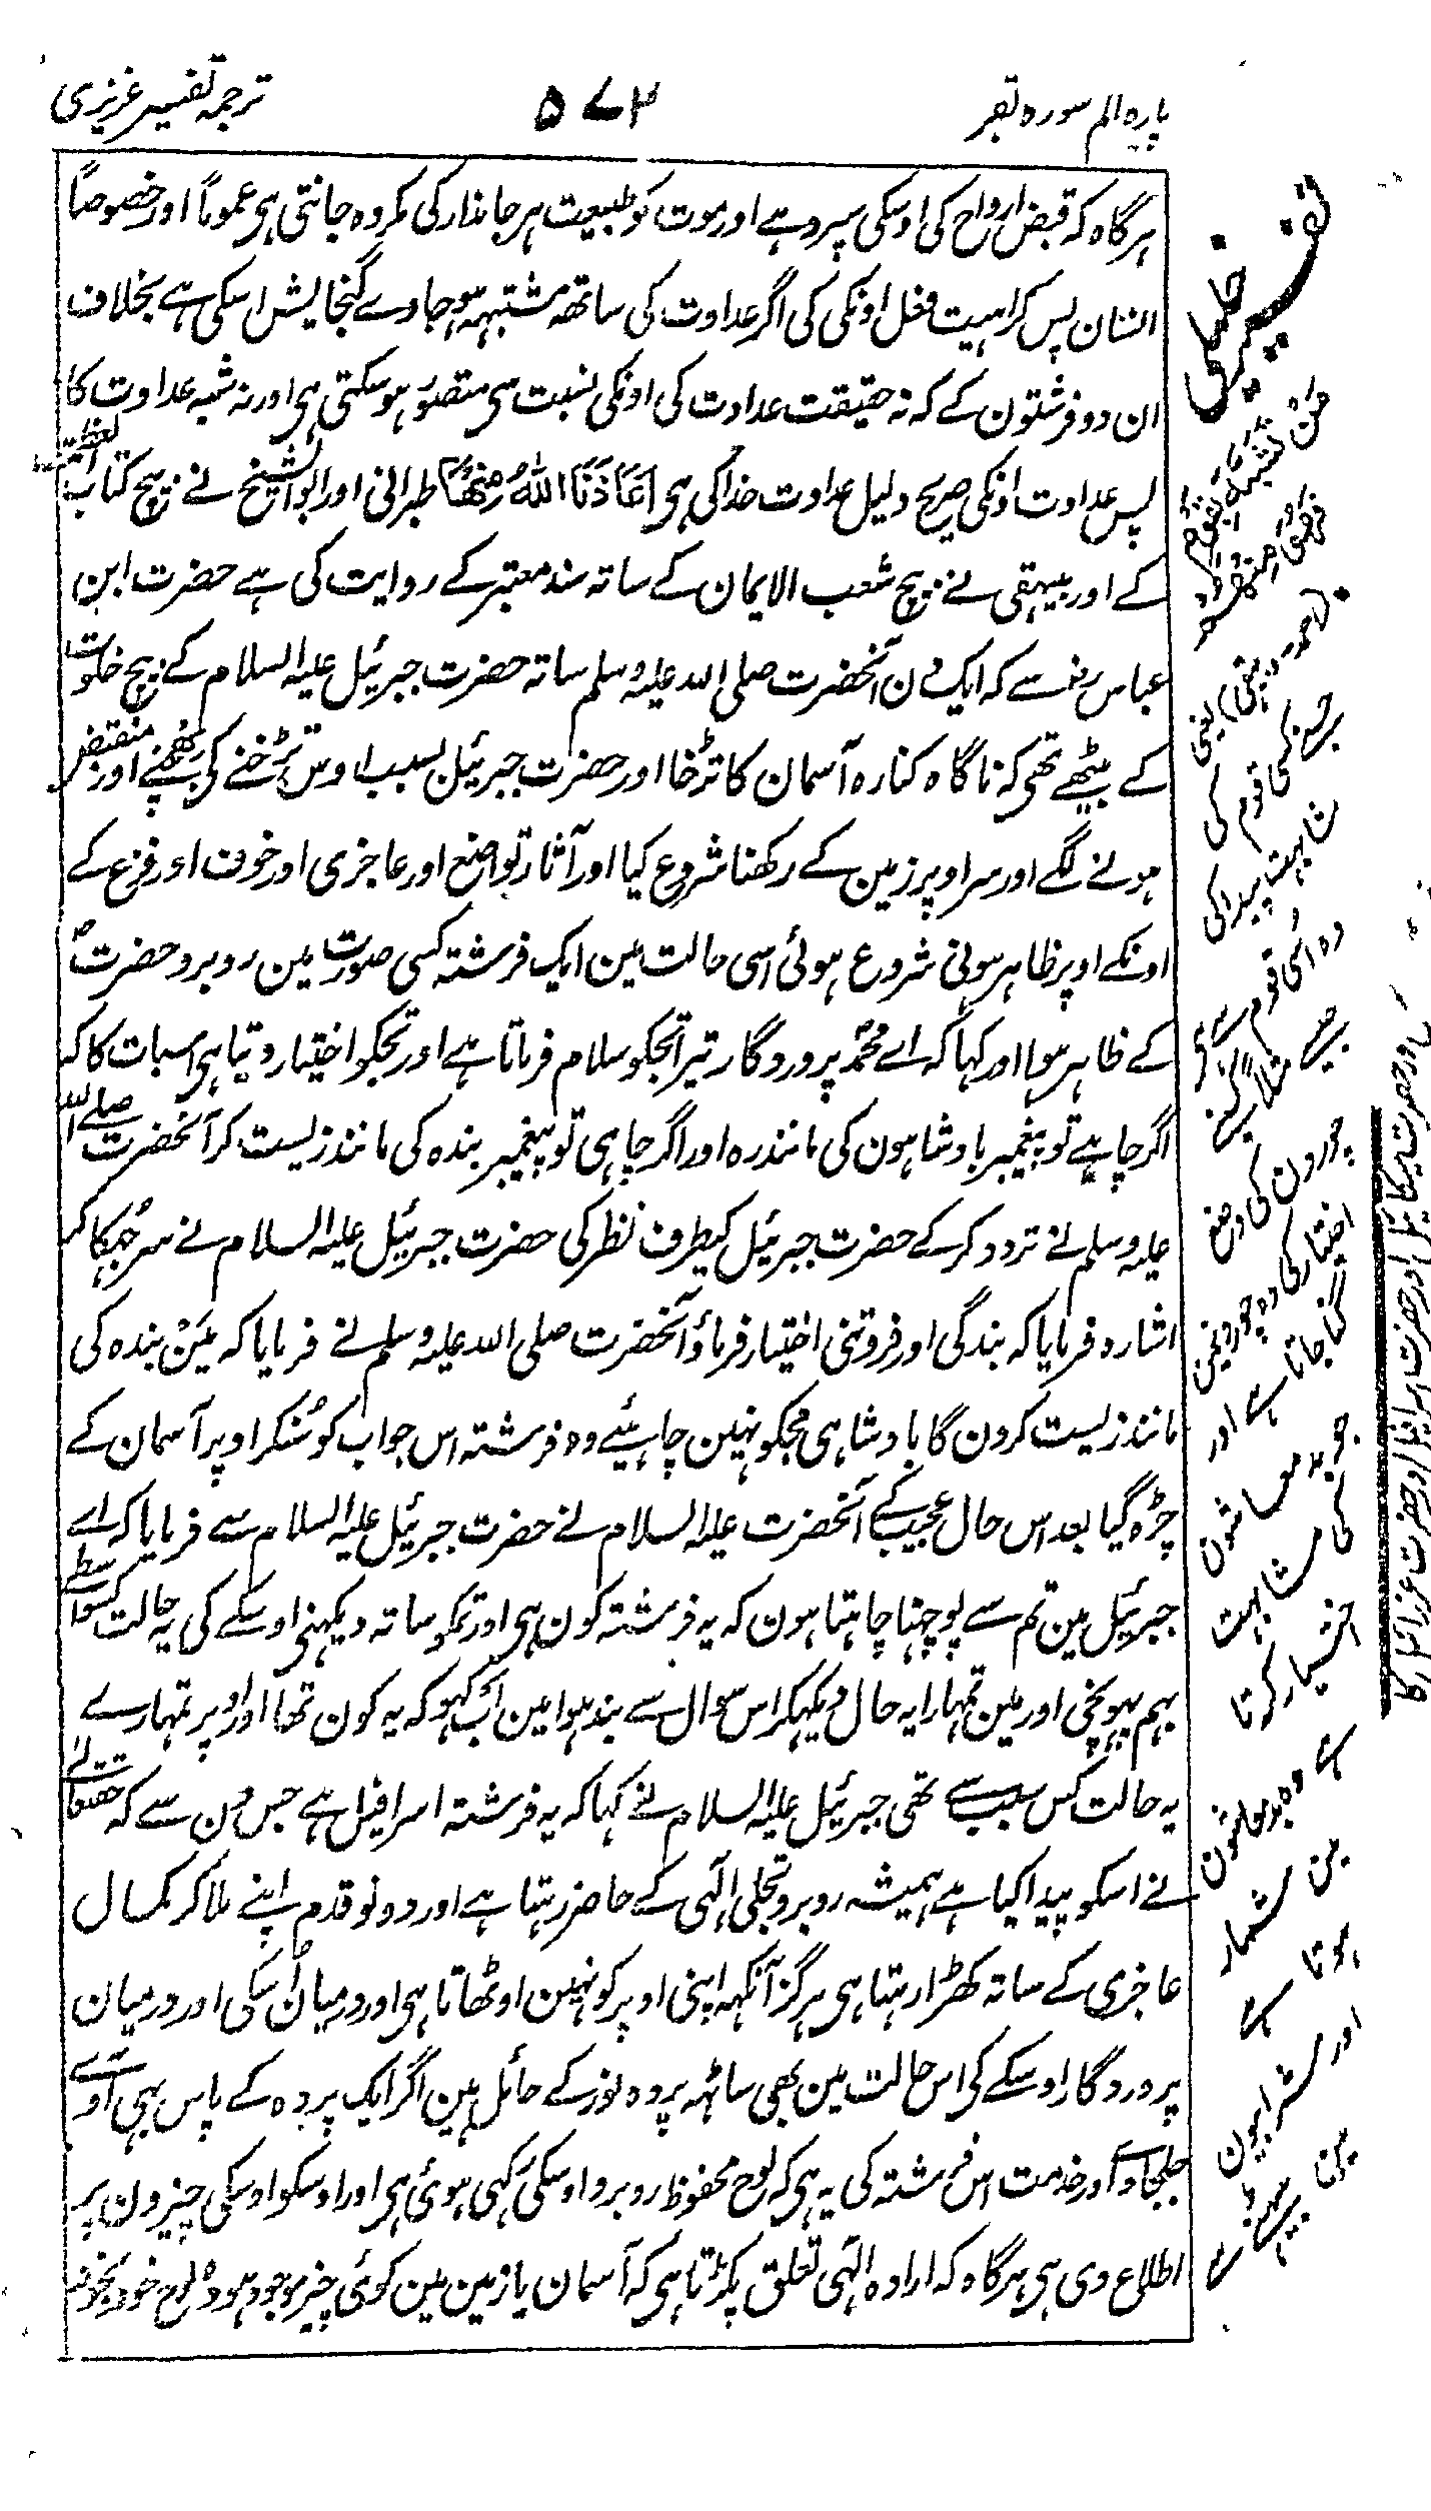 پارہ الم سورہ بقر
۵۷۳
ترجمہ تفسیر عزیزی
ہرگاہ کہ قبض ارواح کی اوسکی سپرد ہے اور موت کو طبیعت ہر جاندار کی مکروہ جانتی ہی عموماً اور خصوصاً
انسان پس کراہیت فعل اونکی کی اگر عداوت کی ساتھ مشتبہہ ہو جاوے گنجایش اسکی ہے بخلاف
ان دو فرشتون کے کہ نہ حقیقت عداوت کی اونکی نسبت سی متصور ہو سکتی ہی اور نہ شبہ عداوت کا
پس عداوت اونکی صریح دلیل عداوت خدا کی ہی اَعَاذَنَا اللّٰہُ مِنْھَا طبرانی اور ابو الشیخ نے بیچ کتاب العظمت
کے اور بیہقی نے بیچ شعب الایمان کے ساتہ سند معتبر کے روایت کی ہے حضرت ابن
عباس رض سے کہ ایک دن آنحضرت صلی اللہ علیہ وسلم ساتہ حضرت جبرئیل علیہ السلام کے بیچ خلوت
کے بیٹھے تھی کہ ناگاہ کنارہ آسمان کا تڑخا اور حضرت جبرئیل بسبب اوس تڑخنے کی اور منقبض
ہونے لگے اور سر اوپر زمین کے رکھنا شروع کیا اور آثار تواضع اور عاجزی اور خوف اور فزع کے
اونکے اوپر ظاہر ہونی شروع ہوئی اسی حالت مین ایک فرشتہ کسی صورت مین روبرو حضرتؐ
کے ظاہر ہوا اور کہا کہ اے محمدؐ پروردگار تیرا تجکو سلام فرماتا ہے اور تجکو اختیار دیتا ہی اسبات کا کہ
اگر چاہیے تو پیغمبر بادشاہون کی مانند رہ اور اگر چاہی تو پیغمبر بندہ کی مانند زیست کر آنحضرت صلے اللہ
علیہ وسلم نے تردد کر کے حضرت جبرئیل کیطرف نظر کی حضرت جبرئیل علیہ السلام نے سر جُہکا کر
اشارہ فرمایا کہ بندگی اور فروتنی اختیار فرماؤ آنحضرت صلی اللہ علیہ وسلم نے فرمایا کہ مَیْن بندہ کی
مانند زیست کرون گا بادشاہی مجکو نہین چاہیئے وہ فرشتہ اس جواب کو سُنکر اوپر آسمان کے
چڑہ گیا بعد اس حال عجیب کے آنحضرت علیہ السلام نے حضرت جبرئیل علیہ السلام سے فرمایا کہ اے
جبرئیل مین تم سے پوچہنا چاہتا ہون کہ یہ فرشتہ کون ہی اور تمکو ساتہ دیکہنی اوسکے کی یہ حالت کسواسطے
بہم پہونچی اور مین تمہارا یہ حال دیکہکر اس سوال سے بند ہوا مین اَب کہو کہ یہ کون تھا اور اوپر تمہارے
یہ حالت کس سبب سے تھی جبرئیل علیہ السلام نے کہا کہ یہ فرشتہ اسرافیل ہے جس دن سے کہ حقتعالے
نے اسکو پیدا کیا ہے ہمیشہ روبرو تجلی الٰہی کے حاضر رہتا ہے اور دونو قدم اپنے ملا کر بکمال
عاجزی کے ساتہ کھڑا رہتا ہی ہرگز آنکہہ اپنی اوپر کو نہین اوٹھاتا ہی اور درمیان اُسکی اور درمیان
پروردگار اوسکے کی اس حالت مین بھی ساٹہہ پردہ نور کے حائل ہین اگر ایک پردہ کے پاس بہی آوے
جلجاوے اور خدمت اس فرشتہ کی یہ ہی کہ لوح محفوظ روبرو اوسکی رکہی ہوئی ہی اور اوسکو اوسکی چیزون پر
اطلاع دی ہی ہرگاہ کہ ارادہ الٰہی تعلق پکڑتا ہی کہ آسمان یا زمین مین کوئی چیز موجود ہو وہ لوح خود بخود
یعنی
جس نے کسی قوم کی
مشابہت پیدا کی
وہ اسی قوم سے ہے
جیسے مثلاً کسی نے
چورون کی وضع
اختیار کی وہ چورونمین
گنا جاتا ہے اور
جو بد معاشون
کی مشابہت
اختیار کرتا
ہے وہ بدمعاشون
مین شمار
ہوتا ہے
اور شرابیون
مین